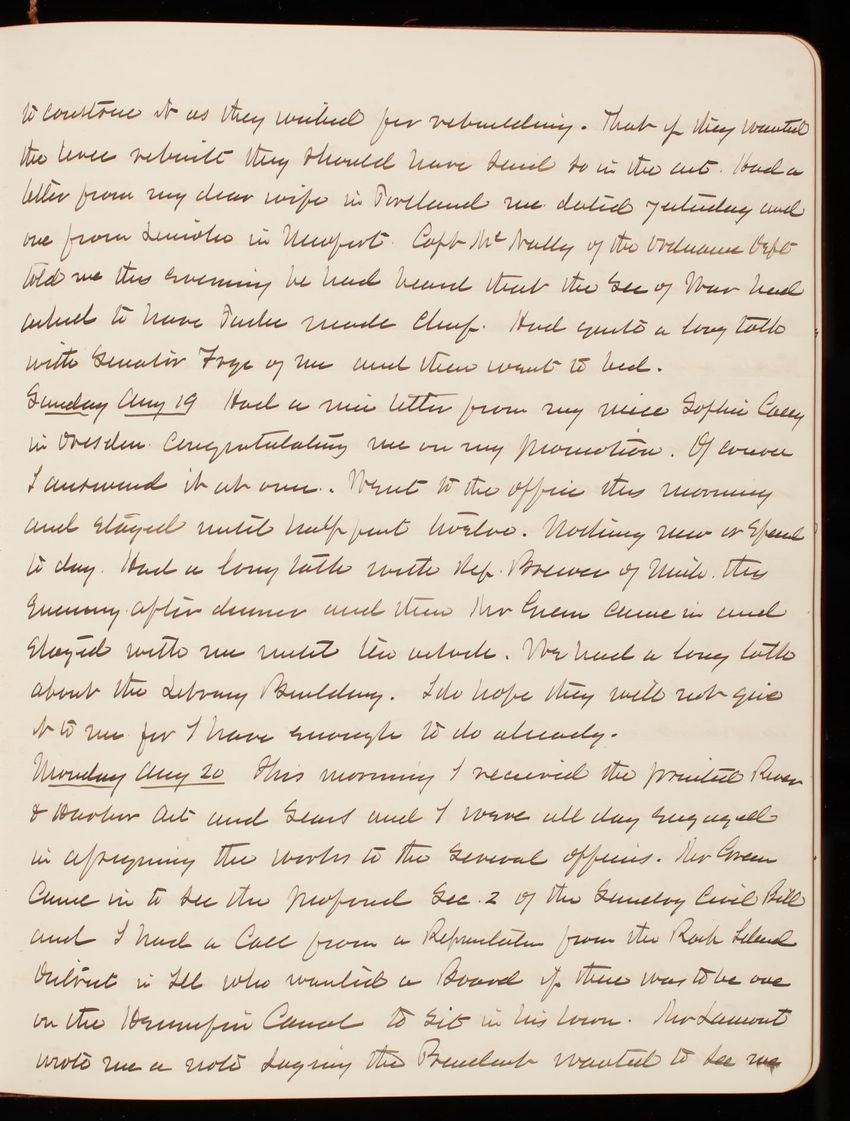 to construe it as they wished for rebuilding. That if they wanted
the levee rebuilt they should have said so in the act. Had a
letter from my dear wife in Portland Me dated yesterday and
one from in Newport. Capt McNally of the Ordnance Dept
told me this evening he had heard that the Sec of War had
asked to have made Chief. Had quite a long talk
with Senator Frye of Me and then went to bed.
Sunday Aug 19 Had a nice letter from my niece Sophie Casey
in Dresden congratulating me on my promotion. Of course
I answered it at once. Went to the office this morning
and stayed until half past twelve. Nothing new or special
to day. Had a long talk with Rep. Brewer of Mich. this
evening after dinner and then Mr Green came in and
stayed with me until ten oclock. We had a long talk
about the Library Building. I do hope they will not give
it to me for I have enough to do already.
Monday Aug 20 This morning I received the printed River
& Harbor Act and Sears and I were all day engaged
in assigning the works to the several officers. Mr Green
came in to see the proposed Sec. 2 of the Sundry Civil Bill
and I had a call from a Representative from the Rock Island
District in Ill who wanted a Board if there was to be one
on the Hennepin Canal to sit in his town. Mr Lamont
wrote me a note saying the President wanted to see me